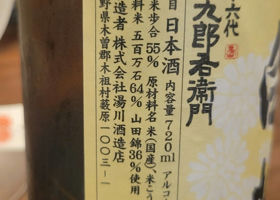 六代
九郎右衛門
目 日本酒 内容量720ml アルコ
米歩合55% 原材料名 米(国産)、米こう
料米 五百万石64% 山田錦36%使用
造者 株式会社湯川酒造店
野県木曽郡木祖村薮原一〇〇三-一